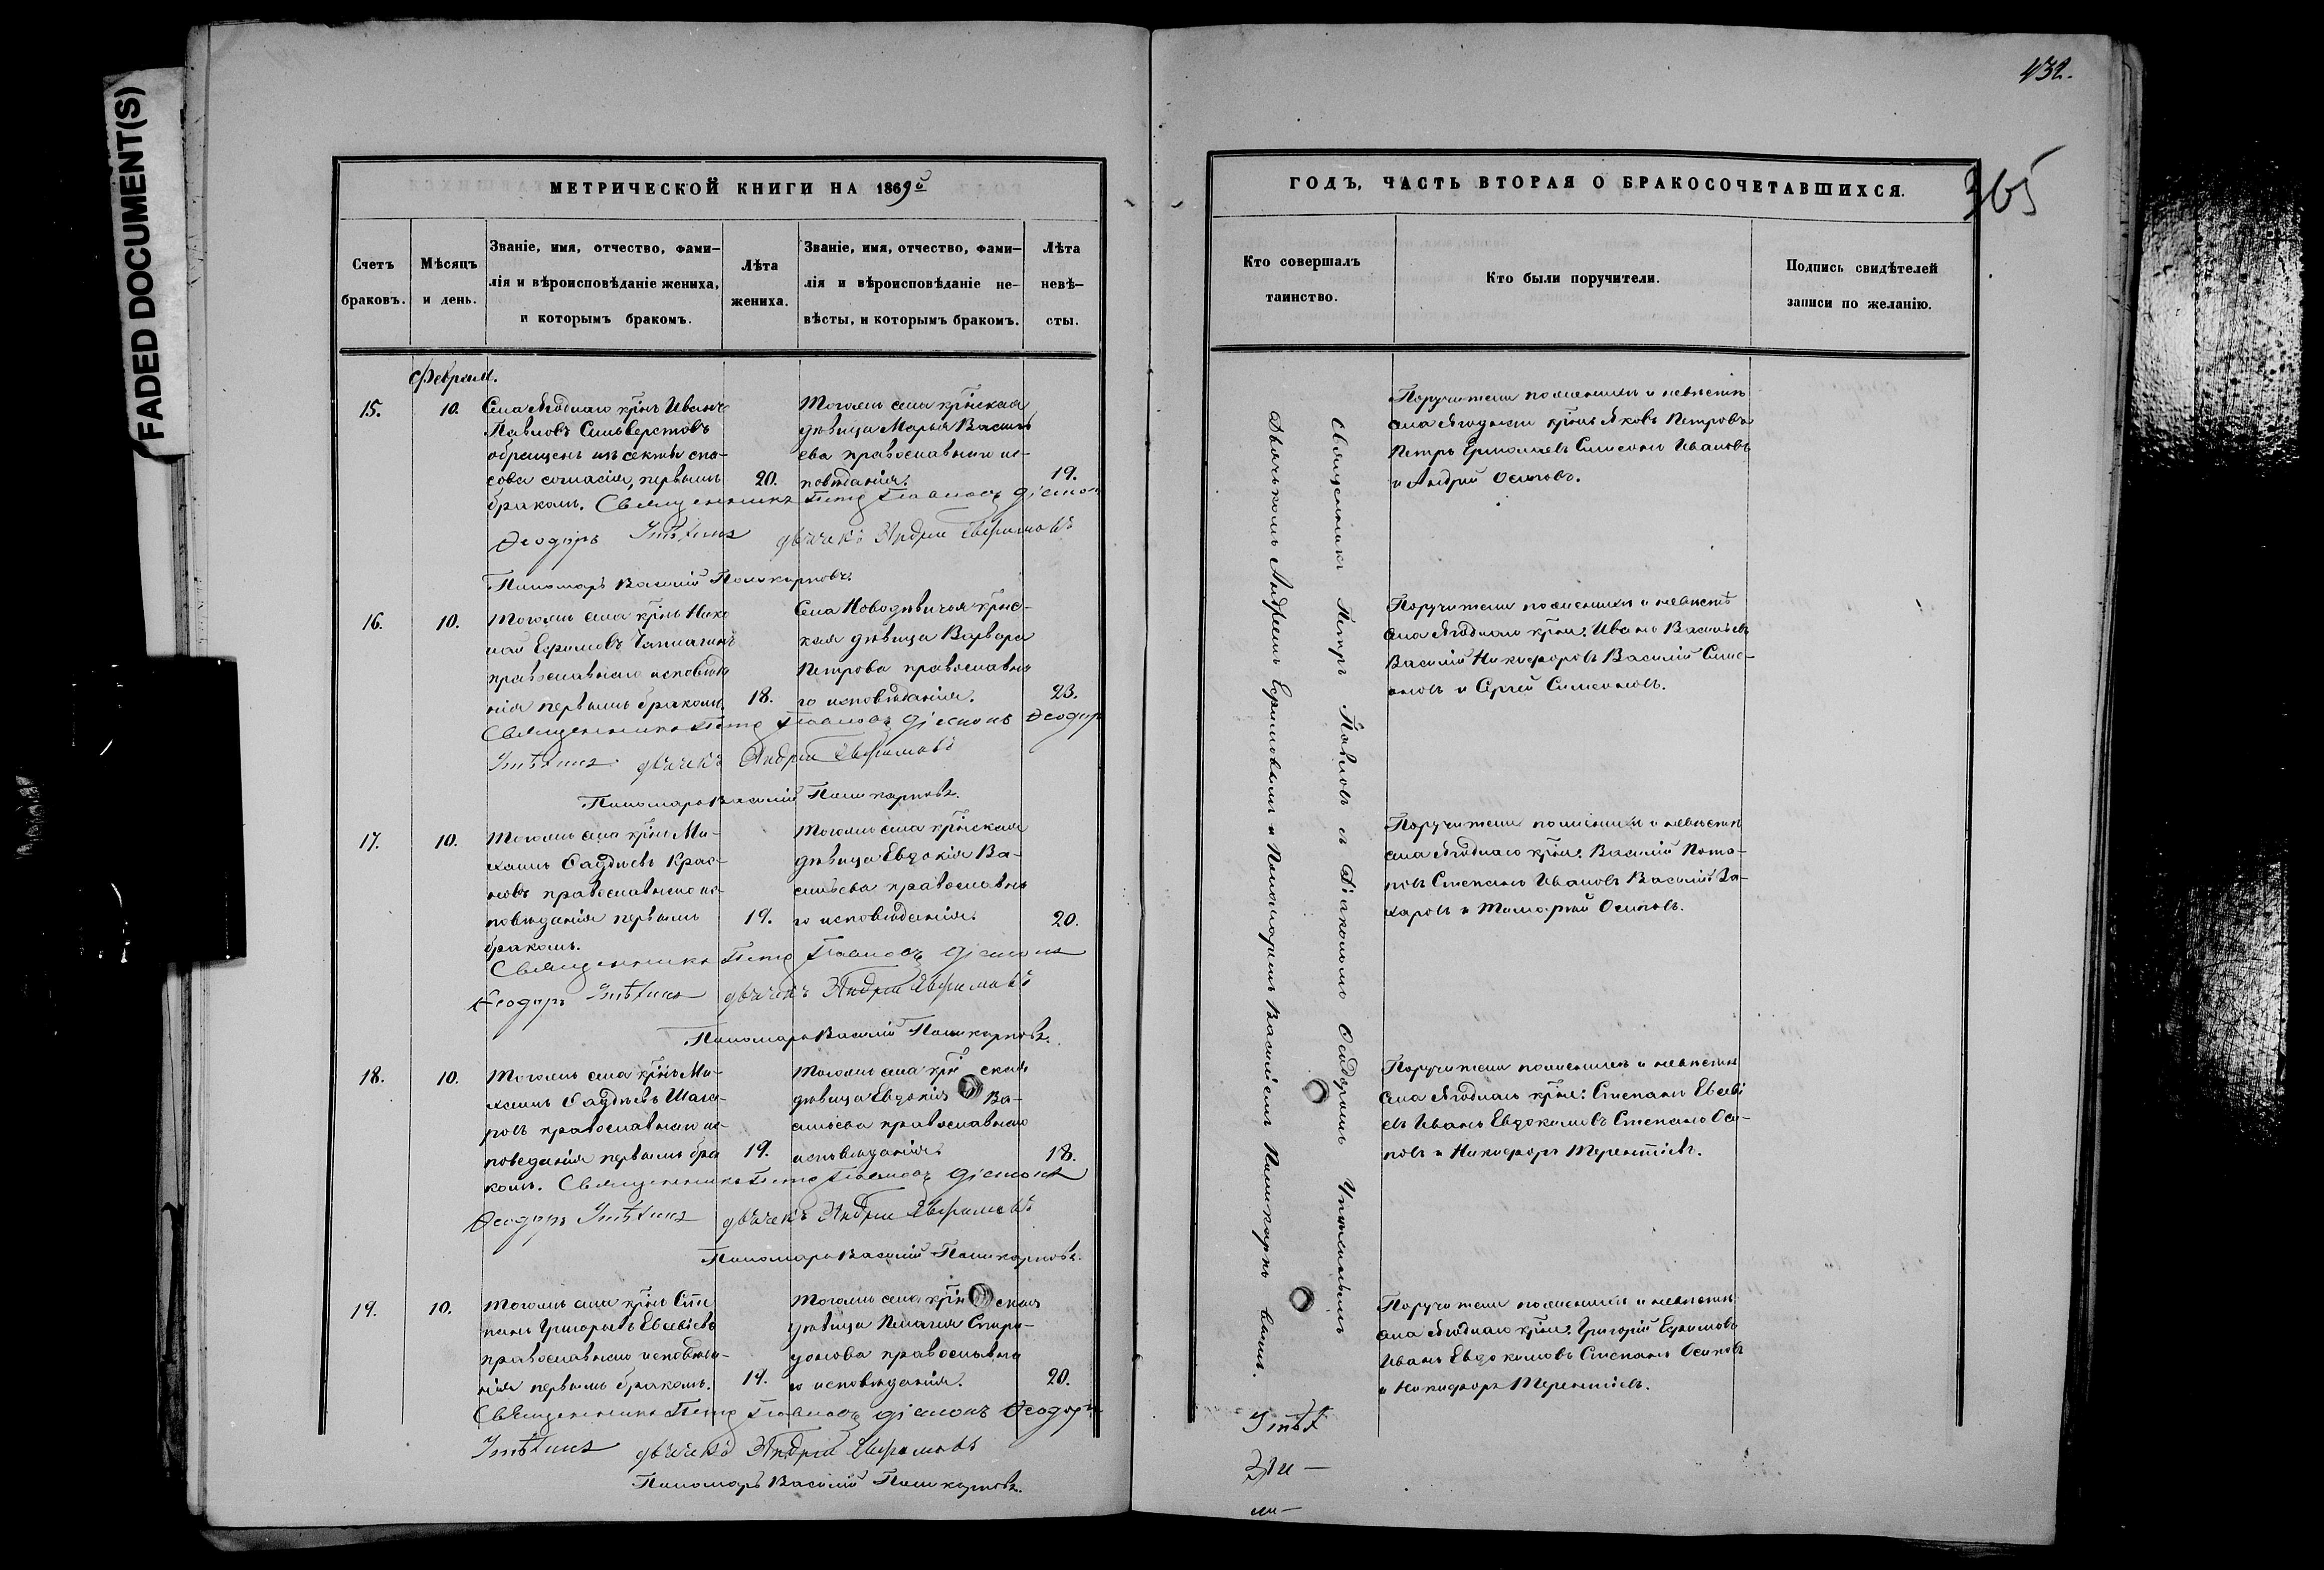 FADED DOCUMENT(S)
МЕТРИЧЕСКОЙ КНИГИ НА 1869й
Счетъ браковъ.
Мѣсяцъ и день.
Званіе, имя, отчество, фами-
лія и вѣроисповѣданіе жениха,
и которымъ бракомъ.
Лѣта жениха.
Званіе, имя, отчество, фами-
лія и вѣроисповѣданіе не-
вѣсты, и которымъ бракомъ.
Лѣта невѣ-
сты.
Февраля.
15.
10.
Села Ягоднаго крнъ Иванъ
Павловъ Сильверстовъ
обращенъ изъ секты спа-
сова согласія, первымъ
бракомъ.
20.
Тогоже села крнская
дѣвица Марья Василь
ева православнаго ис-
повѣданія.
19.
Священникъ Петръ Павловъ діаконъ
Ѳеодоръ дьячекъ Андрей Ефимовъ
Пономарь Василій Поликарповъ.
16.
10.
Тогоже села крнъ Нико
лай Ефимовъ
православнаго исповѣда
нія первымъ бракомъ.
18.
Села Новодѣвичья крнс-
кая дѣвица Варвара
Петрова православна
го исповѣданія.
23.
Священникъ Петръ Павловъ діаконъ Ѳеодоръ
дьячекъ Андрей Ефимовъ
Пономарь Василій Поликарповъ.
17.
10.
Тогоже села крнъ Ми-
хаилъ Фаддѣевъ Крас-
новъ православнаго ис-
повѣданія первымъ
бракомъ.
19.
Тогоже села крнская
дѣвица Евдокія Ва-
сильева православна
го исповѣданія.
20.
Священникъ Петръ Павловъ діаконъ
Ѳеодоръ дьячекъ Андрей Ефимовъ
Пономарь Василій Поликарповъ.
18.
10.
Тогоже села крнъ Ми-
хаилъ Фаддѣевъ Шага-
ровъ православнаго ис-
поведанія первымъ бра
комъ.
19.
Тогоже села крнская
дѣвица Евдокія Ва-
сильева православнаго
исповѣданія.
18.
Священникъ Петръ Павловъ діаконъ
Ѳеодоръ дьячекъ Андрей Ефимовъ
Пономарь Василій Поликарповъ.
19.
10.
Тогоже села крнъ Сте
панъ Григорьевъ Евсевіевъ
православнаго исповѣда-
нія первымъ бракомъ.
19.
Тогоже села крнская
дѣвица Пелагия Спири-
донова православна
го исповѣданія.
20.
Священникъ Петръ Павловъ діаконъ Ѳеодоръ
дьячекъ Андрей Ефимовъ
Пономарь Василій Поликарповъ.
432.
365
ГОДЪ, ЧАСТЬ ВТОРАЯ О БРАКОСОЧЕТАВШИХСЯ.
Кто совершалъ
таинство.
Кто были поручители.
Подпись свидѣтелей
записи по желанію.
Священникъ Петръ Павловъ съ Діакономъ Ѳеодоромъ
Дьячькомъ Андреемъ Ефимовымъ и Пономаремъ Василіемъ Поликарповымъ.
Поручители по женихѣ и невѣстѣ
села Ягоднаго крне: Яковъ Петровъ
Петръ Ермолаевъ Симеонъ Ивановъ
и Андрей Осиповъ.
Поручители по женихѣ и невѣстѣ
села Ягоднаго крне: Иванъ Васильевъ
Василій Никифоровъ Василій Симе-
оновъ и Сергей Симеоновъ.
Поручители по женихѣ и невѣстѣ
села Ягоднаго крне: Василій Пота-
повъ Степанъ Ивановъ Василій За-
харовъ и Тимофей Осиповъ.
Поручители по женихѣ и невѣстѣ
села Ягоднаго крне: Степанъ Евсеві
евъ Иванъ Евдокимовъ Степанъ Оси-
повъ и Никифоръ Терентіевъ.
Поручители по женихѣ и невѣстѣ
села Ягоднаго крне: Григорій Ефимовъ
Иванъ Евдокимовъ Степанъ Осиповъ
и Никифоръ Терентіевъ.